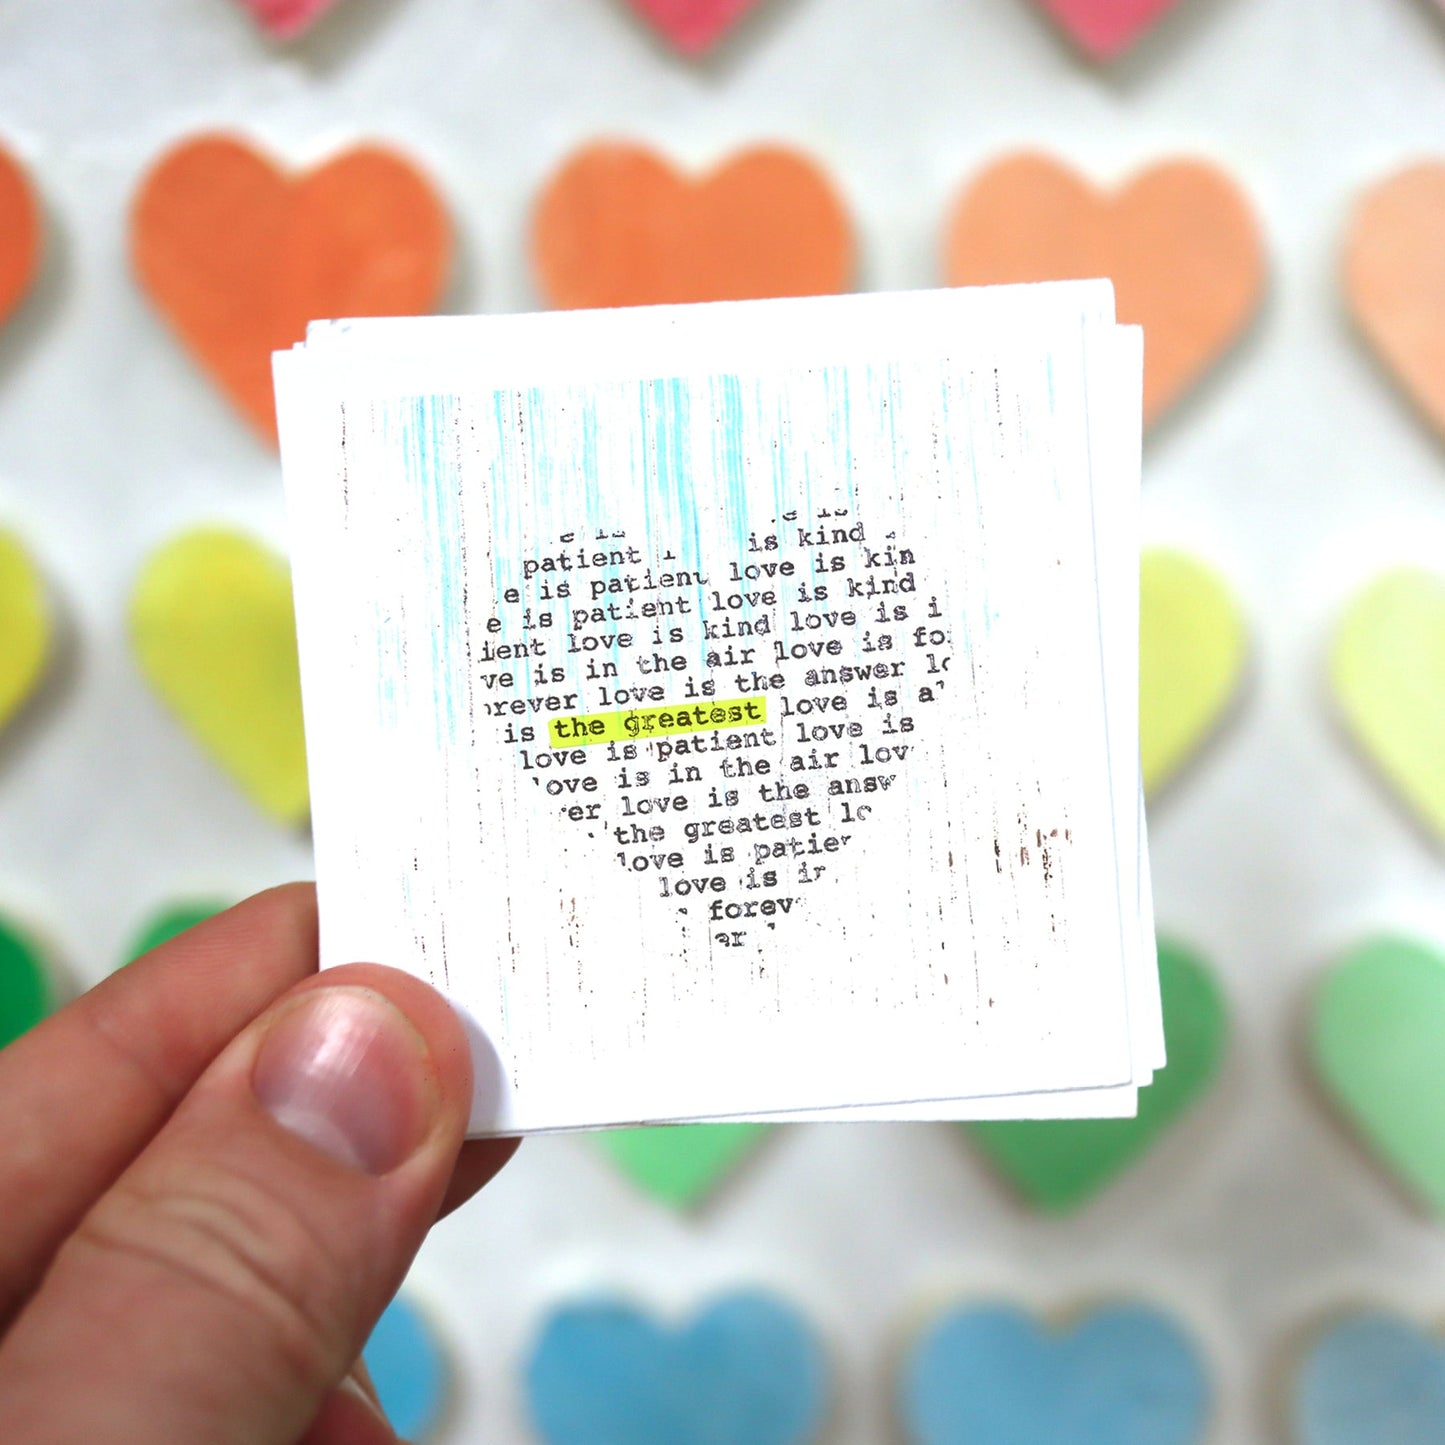 is
patient is kind
is patient love is kin
is patient love is kind
love is kind love is
is in the air love is
love is the answer
is the greatest love is
love is patient love is
love is in the air
love is the
the greatest
love is
love is